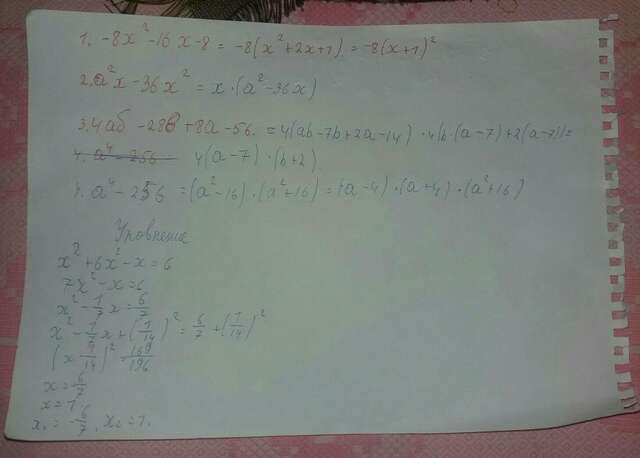 1. -8x²-16x-8 = -8(x²+2x+1) = -8(x+1)²
2. a²x - 36x² = x·(a²-36x)
3. 4аб - 28б + 8a - 56 = 4(ab-7b+2a-14) · 4(b·(a-7)+2(a-7))=
4. a⁴-256 4(a-7)·(b+2)
4. a⁴ - 256 = (a²-16)·(a²+16) = (a-4)·(a+4)·(a²+16)
Уровнение
x²+6x²-x=6
7x²-x=6
x²-1/7x=6/7
x²-1/7x+(1/14)²=6/7+(1/14)²
(x-1/14)²=169/196
x=-6/7
x=1
x₁=-6/7, x₂=1.